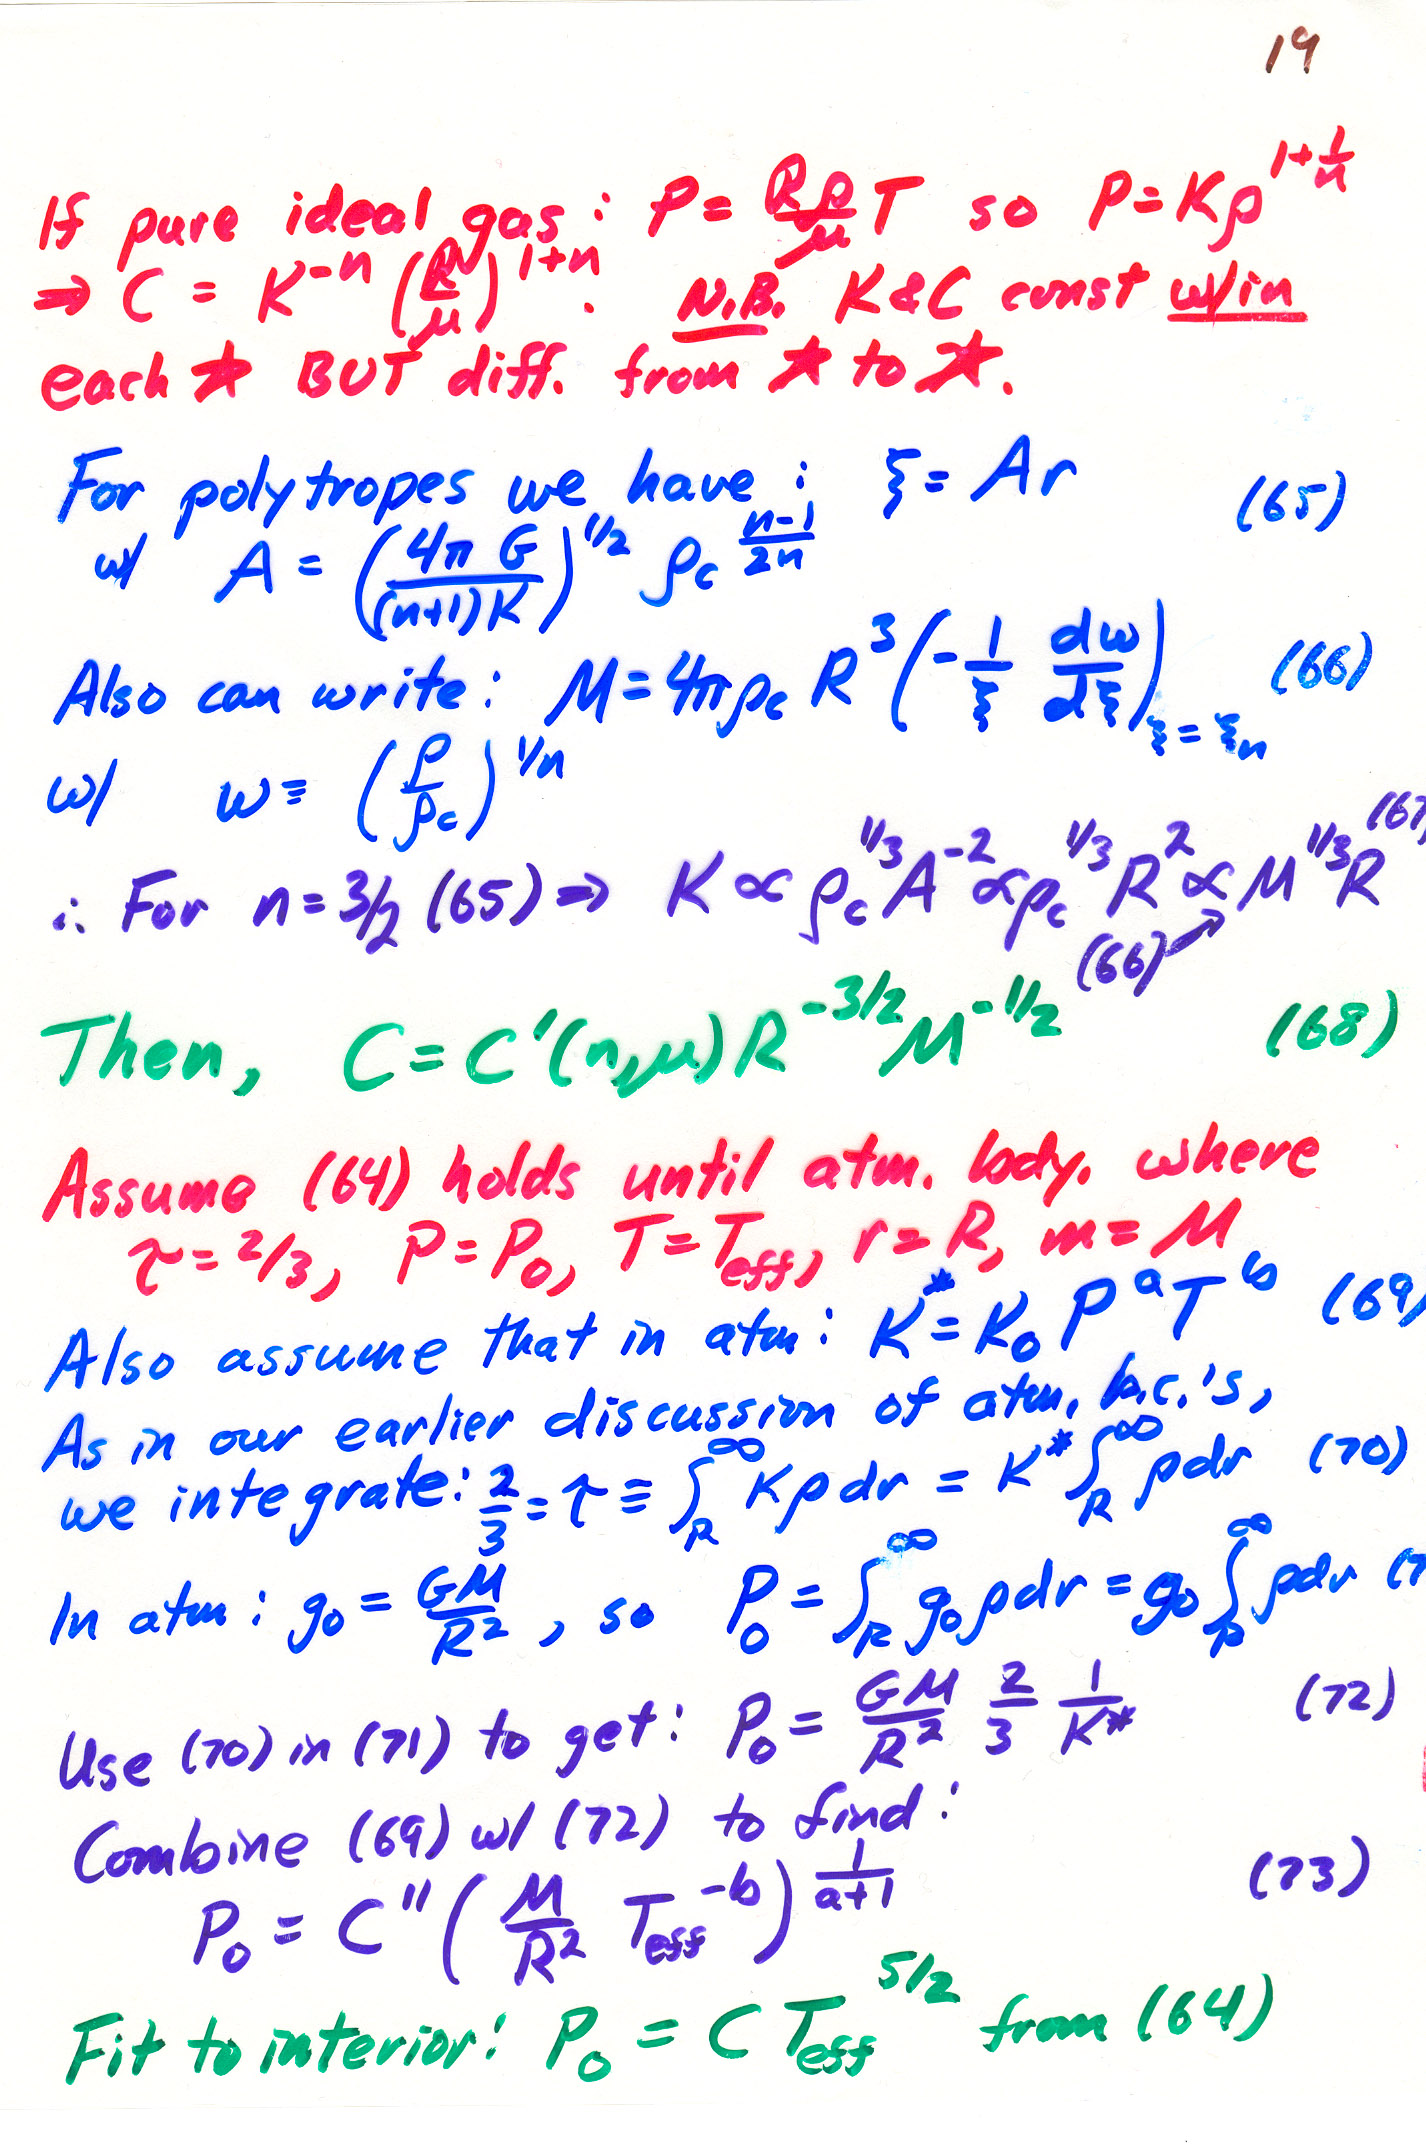 19
If pure ideal gas: P = (ℛρ/μ) T so P = Kρ^(1+1/n)
⇒ C = K^(-n) (ℛ/μ)^(1+n). N.B. K & C const w/in
each ★ BUT diff. from ★ to ★.
For polytropes we have: ξ = Ar (65)
w/ A = (4πG/(n+1)K)^(1/2) ρ_c^((n-1)/2n)
Also can write: M = 4πρ_c R^3 (-1/ξ dw/dξ)_(ξ=ξ_n) (66)
w/ w ≡ (ρ/ρ_c)^(1/n)
∴ For n = 3/2 (65) ⇒ K ∝ ρ_c^(1/3) A^(-2) ∝ ρ_c^(1/3) R^2 ∝ M^(1/3) R (67
(66)↗
Then, C = C'(n,μ) R^(-3/2) M^(-1/2) (68)
Assume (64) holds until atm. bdy. where
τ = 2/3, P = P_0, T = T_eff, r = R, m = M
Also assume that in atm: K* = K_0 P^a T^b (69)
As in our earlier discussion of atm. b.c.'s,
we integrate: 2/3 = τ ≡ ∫_R^∞ Kρ dr = K* ∫_R^∞ ρ dr (70)
In atm: g_0 = GM/R^2, so P_0 = ∫_R^∞ g_0 ρ dr = g_0 ∫_R^∞ ρ dr (7
Use (70) in (71) to get: P_0 = GM/R^2 2/3 1/K* (72)
Combine (69) w/ (72) to find:
P_0 = C'' (M/R^2 T_eff^(-b))^(1/(a+1)) (73)
Fit to interior: P_0 = C T_eff^(5/2) from (64)